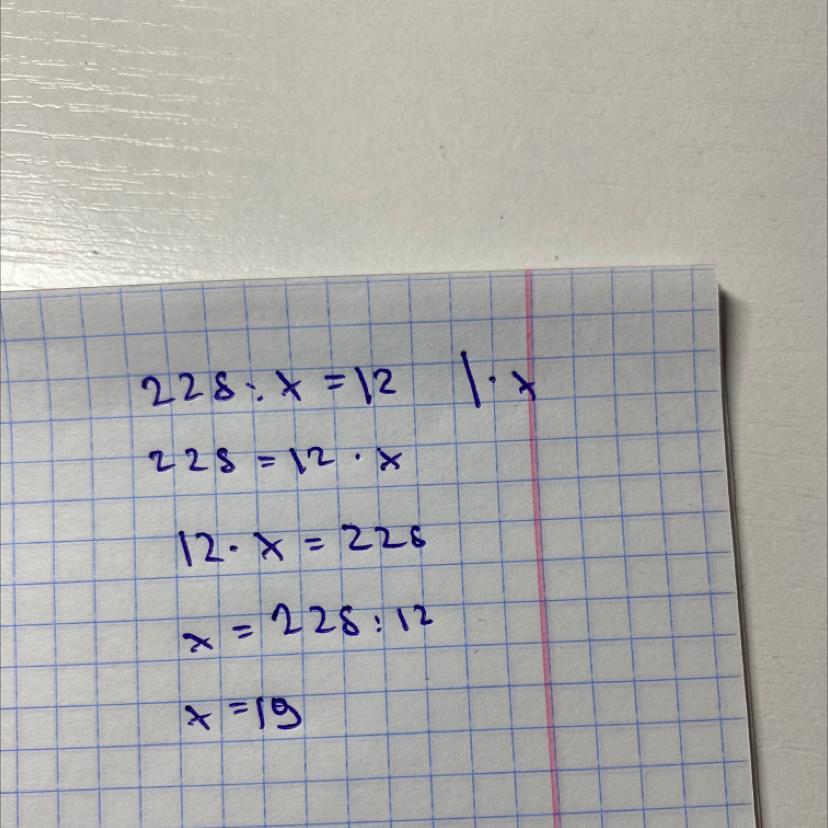 228 : x = 12 | · x
228 = 12 · x
12 · x = 228
x = 228 : 12
x = 19